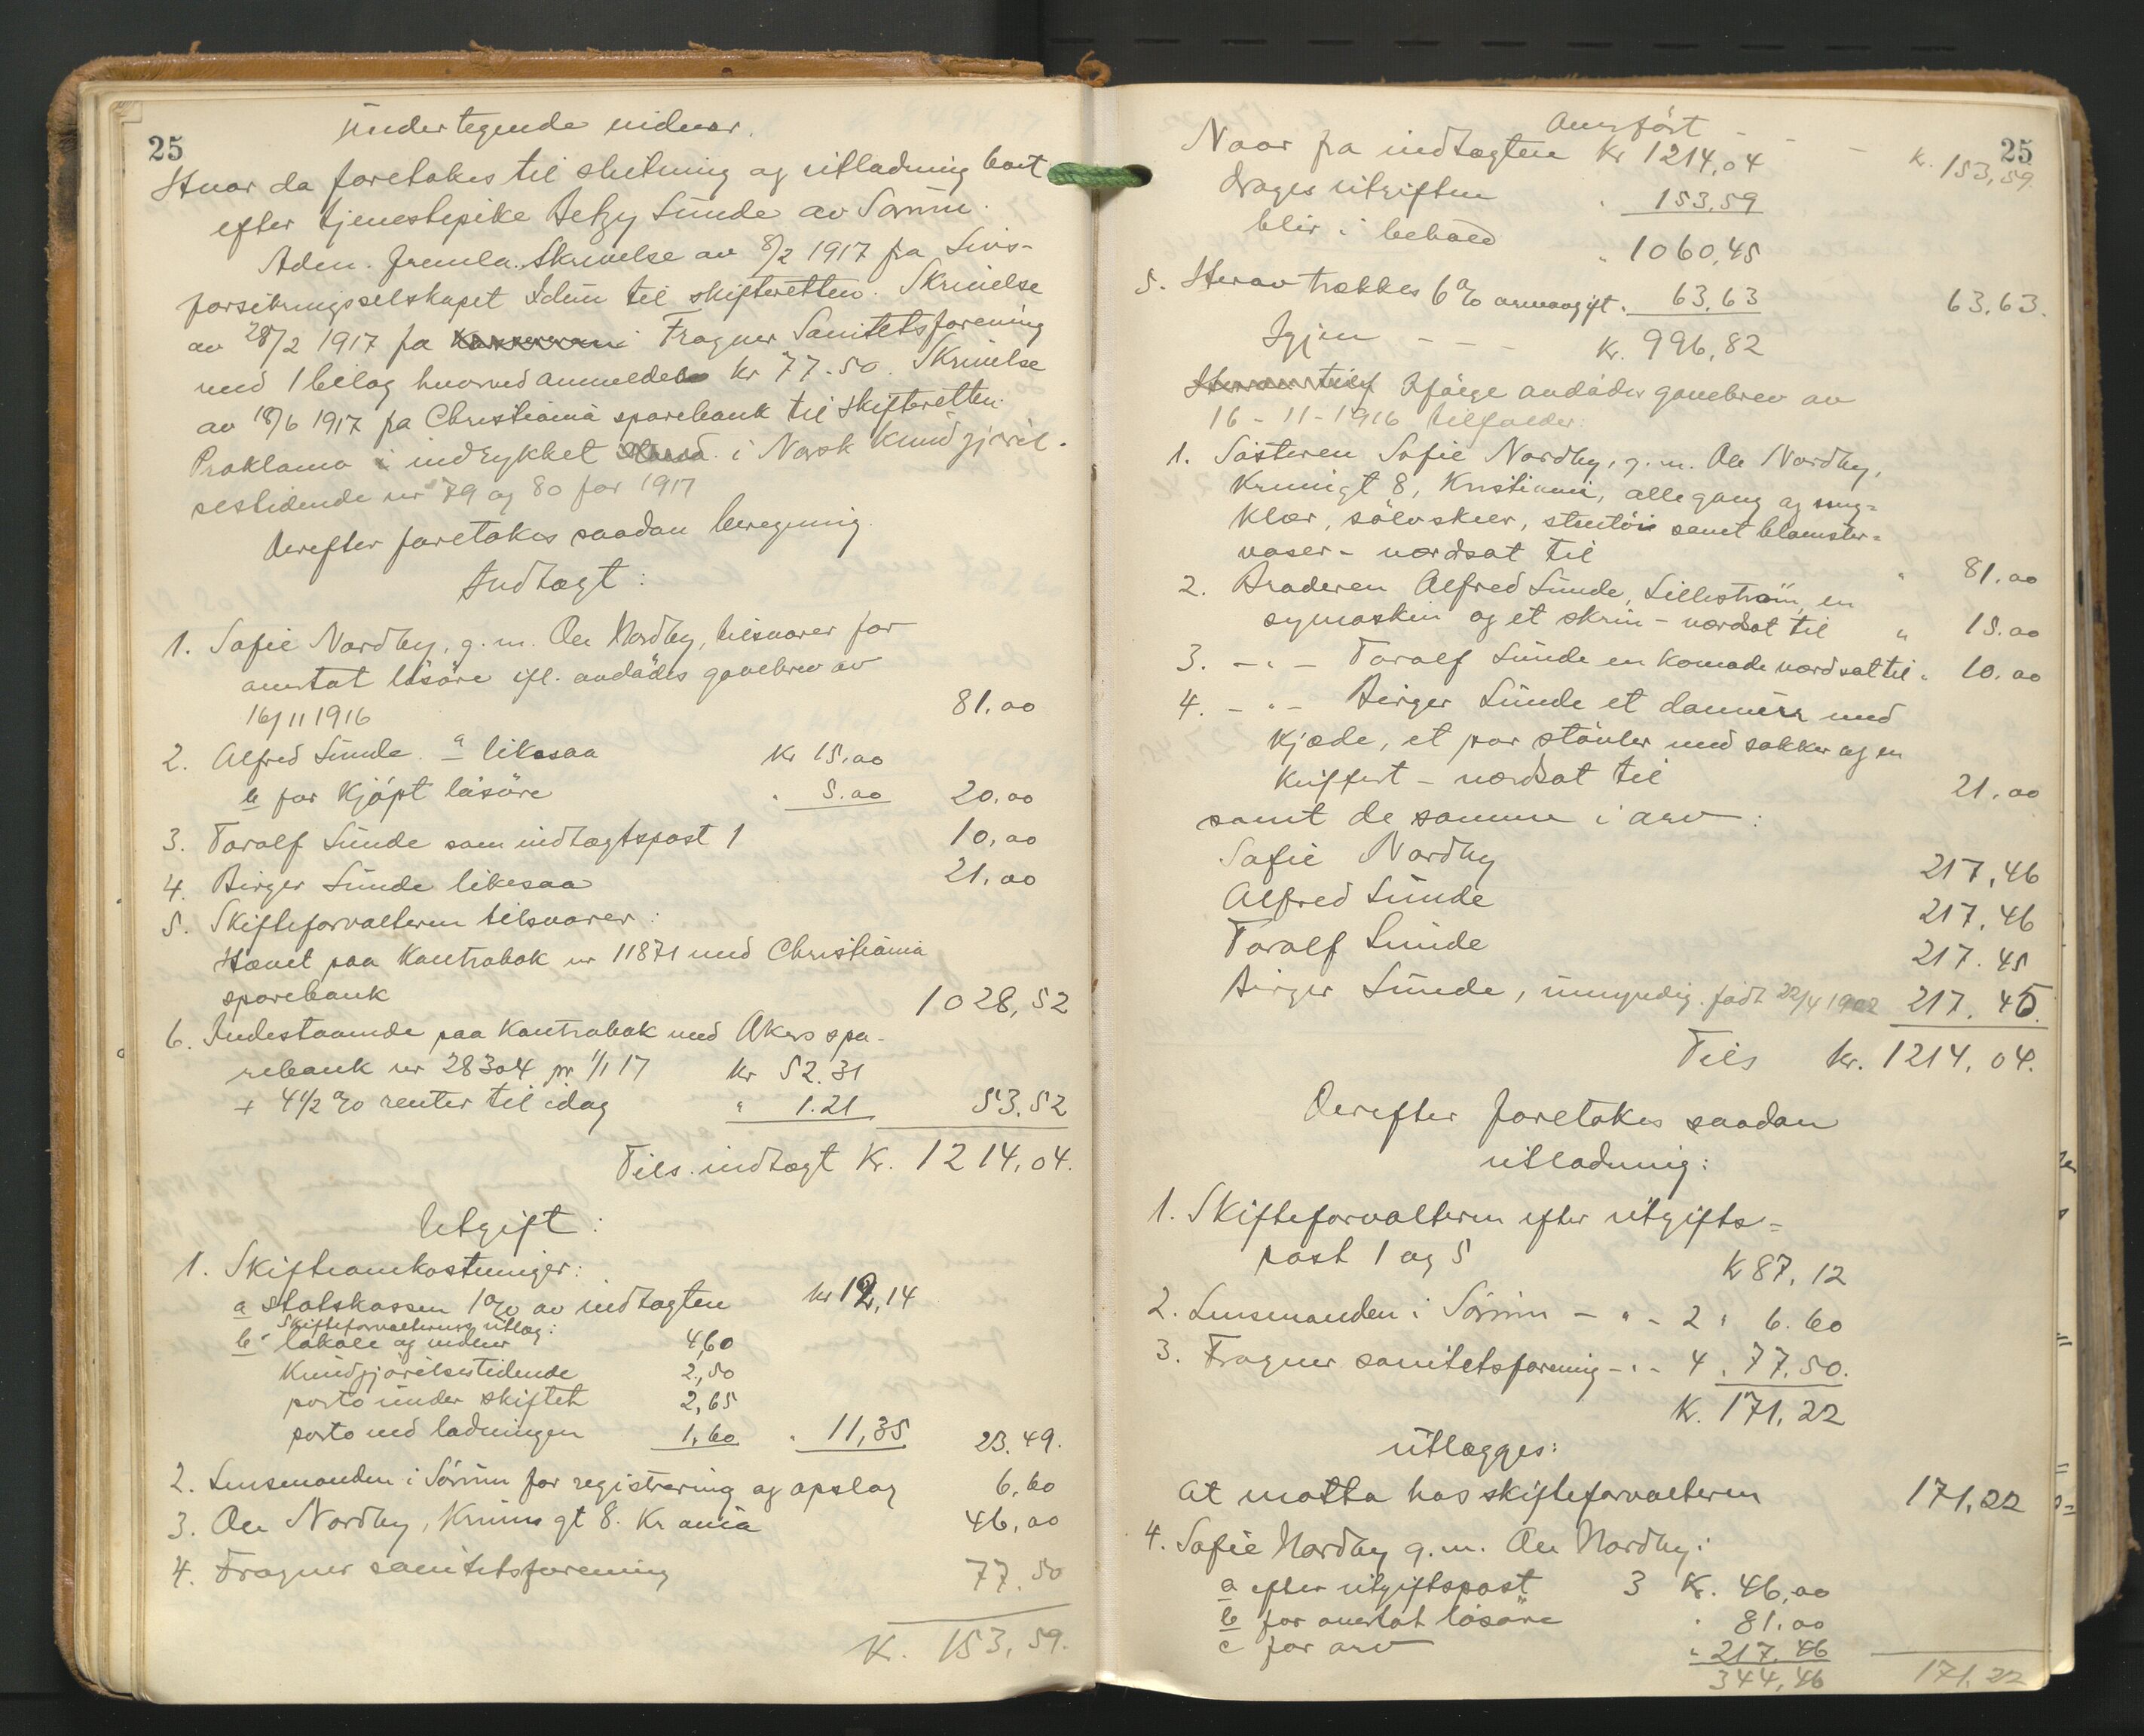 25
undertegnede vidner.
Hvor da foretokes til slutning og utlodning boet
efter tjenestepike Betzy Sunde av Sørum.
Aden. freml. Skrivelse av 8/2 1917 fra Livs-
forsikringsselskapet Idun til skifteretten. Skrivelse
av 28/2 1917 fra Frogner Sanitetsforening
med 1 bilag hvorved anmeldes kr 77.50. Skrivelse
av 18/6 1917 fra Christiania sparebank til skifteretten.
Proklama indrykket i Norsk Kundgjørel-
sestidende nr 79 og 80 for 1917
Derefter foretokes saadan beregning.
Indtægt:
1. Sofie Nordby, g.m. Ole Nordby, tilsvarer for
avertat løsøre ifl. avdødes gavebrev av
16/11 1916 81.00
2. Alfred Sunde. a likesaa kr 15,00
b for kjøpt løsøre " 5.00 20,00
3. Toralf Sunde som indtægtspost 1 10,00
4. Birger Sunde likesaa 21,00
5. Skifteforvalteren tilsvarer:
Hævet paa Kontrabok nr 11871 med Christiania
sparebank 1028,52
6. Indestaaende paa Kontrabok med Akers spa-
rebank nr 28304 pr 1/1 17 kr 52.31
+ 4 1/2 % renter til idag " 1.21 53.52
Tils. indtægt Kr. 1214,04.
Utgift:
1. Skifteomkostninger:
a statskassen 1% av indtægten kr 12,14
Skifteforvalterens utlæg:
b lokale og vidner 4,60
Kundgjørelsestidende 2,50
porto under skiftet 2,65
porto ved lodningen 1,60 " 11,35 23.49.
2. Lensmanden i Sørum for registrering og opslag 6,60
3. Ole Nordby, Krumgt 8. Kr ania 46,00
4. Frogner sanitetsforening 77.50
K. 153,59.
25
Overført - - - K. 153,59
Naar fra indtægten Kr 1214,04
drages utgiften " 153,59
blir i behold " 1060,45
5. Herav trækkes 6% arveavgift " 63,63 63,63.
Igjen - - - Kr. 996,82
Ifølge avdødes gavebrev av
16-11-1916 tilfalder:
1. Søsteren Sofie Nordby, g.m. Ole Nordby,
Krumgt 8, Kristiania, alle gang og seng=
klær, sølvskeer, stentøi samt blomster=
vaser - værdsat til " 81.00
2. Broderen Alfred Sunde, Lillestrøm, en
symaskin og et skrin - værdsat til " 15.00
3. - " - Toralf Sunde en Komode værdsat til " 10.00
4. - " - Birger Sunde et dameur med
kjæde, et par støvler med sokker og en
kuffert - værdsat til 21.00
samt de samme i arv:
Sofie Nordby 217,46
Alfred Sunde 217,46
Toralf Sunde 217.45
Birger Sunde, umyndig. født 22/4 1902 217.45
Tils kr. 1214,04.
Derefter foretokes saadan
utlodning:
1. Skifteforvalteren efter utgifts=
post 1 og 5 K 87,12
2. Lensmanden i Sørum - " - 2 " 6.60
3. Frogner sanitetsforening - " - 4 " 77.50.
K. 171,22
utlægges:
At motta hos skifteforvalteren 171,22
4. Sofie Nordby g.m. Ole Nordby:
a efter utgiftspost 3 K. 46,00
b for overtat løsøre " 81.00
c for arv " 217,46
344,46 171,22